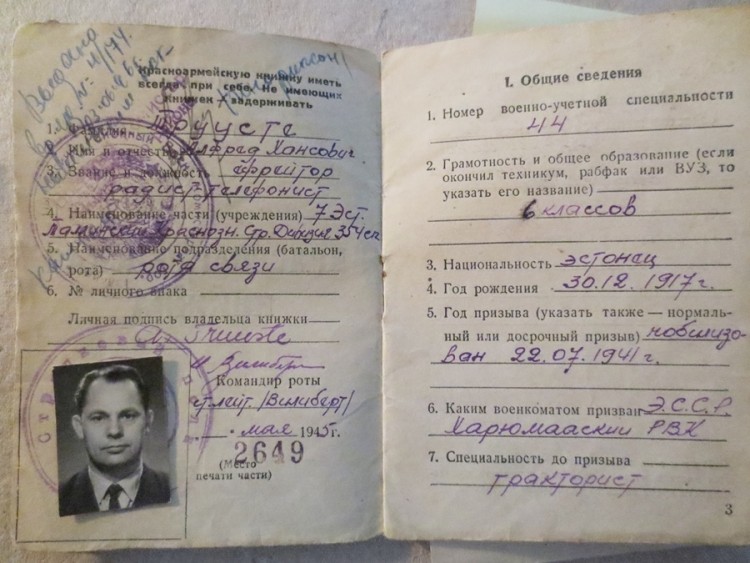 Выдано
Красноармейскую книжку иметь
всегда при себе. Не имеющих
книжек задерживать
1. Фамилия Труусте
2. Имя и отчество Алфред Хансович
3. Звание и должность ефрейтор
радист-телефонист
4. Наименование части (учреждения) 7 Эст.
Таллинский Краснозн. Стр. Дивизия 354 сп
5. Наименование подразделения (батальон,
рота) рота связи
6. № личного знака
Личная подпись владельца книжки
Командир роты
ст. лейт. /Вилиберг/
мая 1945г.
2649
(Место
печати части)
I. Общие сведения
1. Номер военно-учетной специальности
44
2. Грамотность и общее образование (если
окончил техникум, рабфак или ВУЗ, то
указать его название)
6 классов
3. Национальность эстонец
4. Год рождения 30.12.1917г.
5. Год призыва (указать также — нормаль-
ный или досрочный призыв) мобилизо-
ван 22.07.1941г.
6. Каким военкоматом призван Э.С.С.Р.
Харюмааский РВК
7. Специальность до призыва
тракторист
3